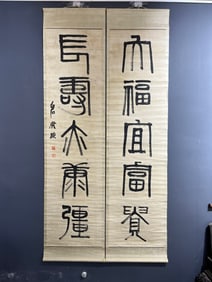 大福宜富貴
長壽亦康彊